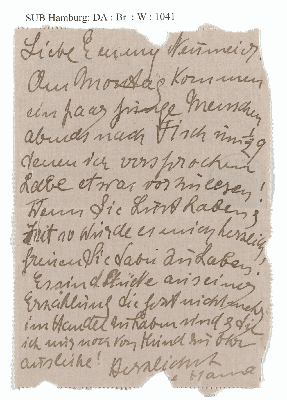 SUB Hamburg: DA : Br : W : 1041
Liebe Emmy Neumeid.
Am Montag kommen
ein paar junge Menschen
abends nach Tisch um ½9
denen ich versprochen
habe etwas vorzulesen!
Wenn Sie Lust haben &
Zeit so würde es mich herzlich
freuen Sie dabei zu haben!
Es sind Stücke aus einer
Erzählung die jetzt nicht mehr
im Handel zu haben sind &
ich nur noch von Mund zu Ohr
ausleihe!
Herzlichst